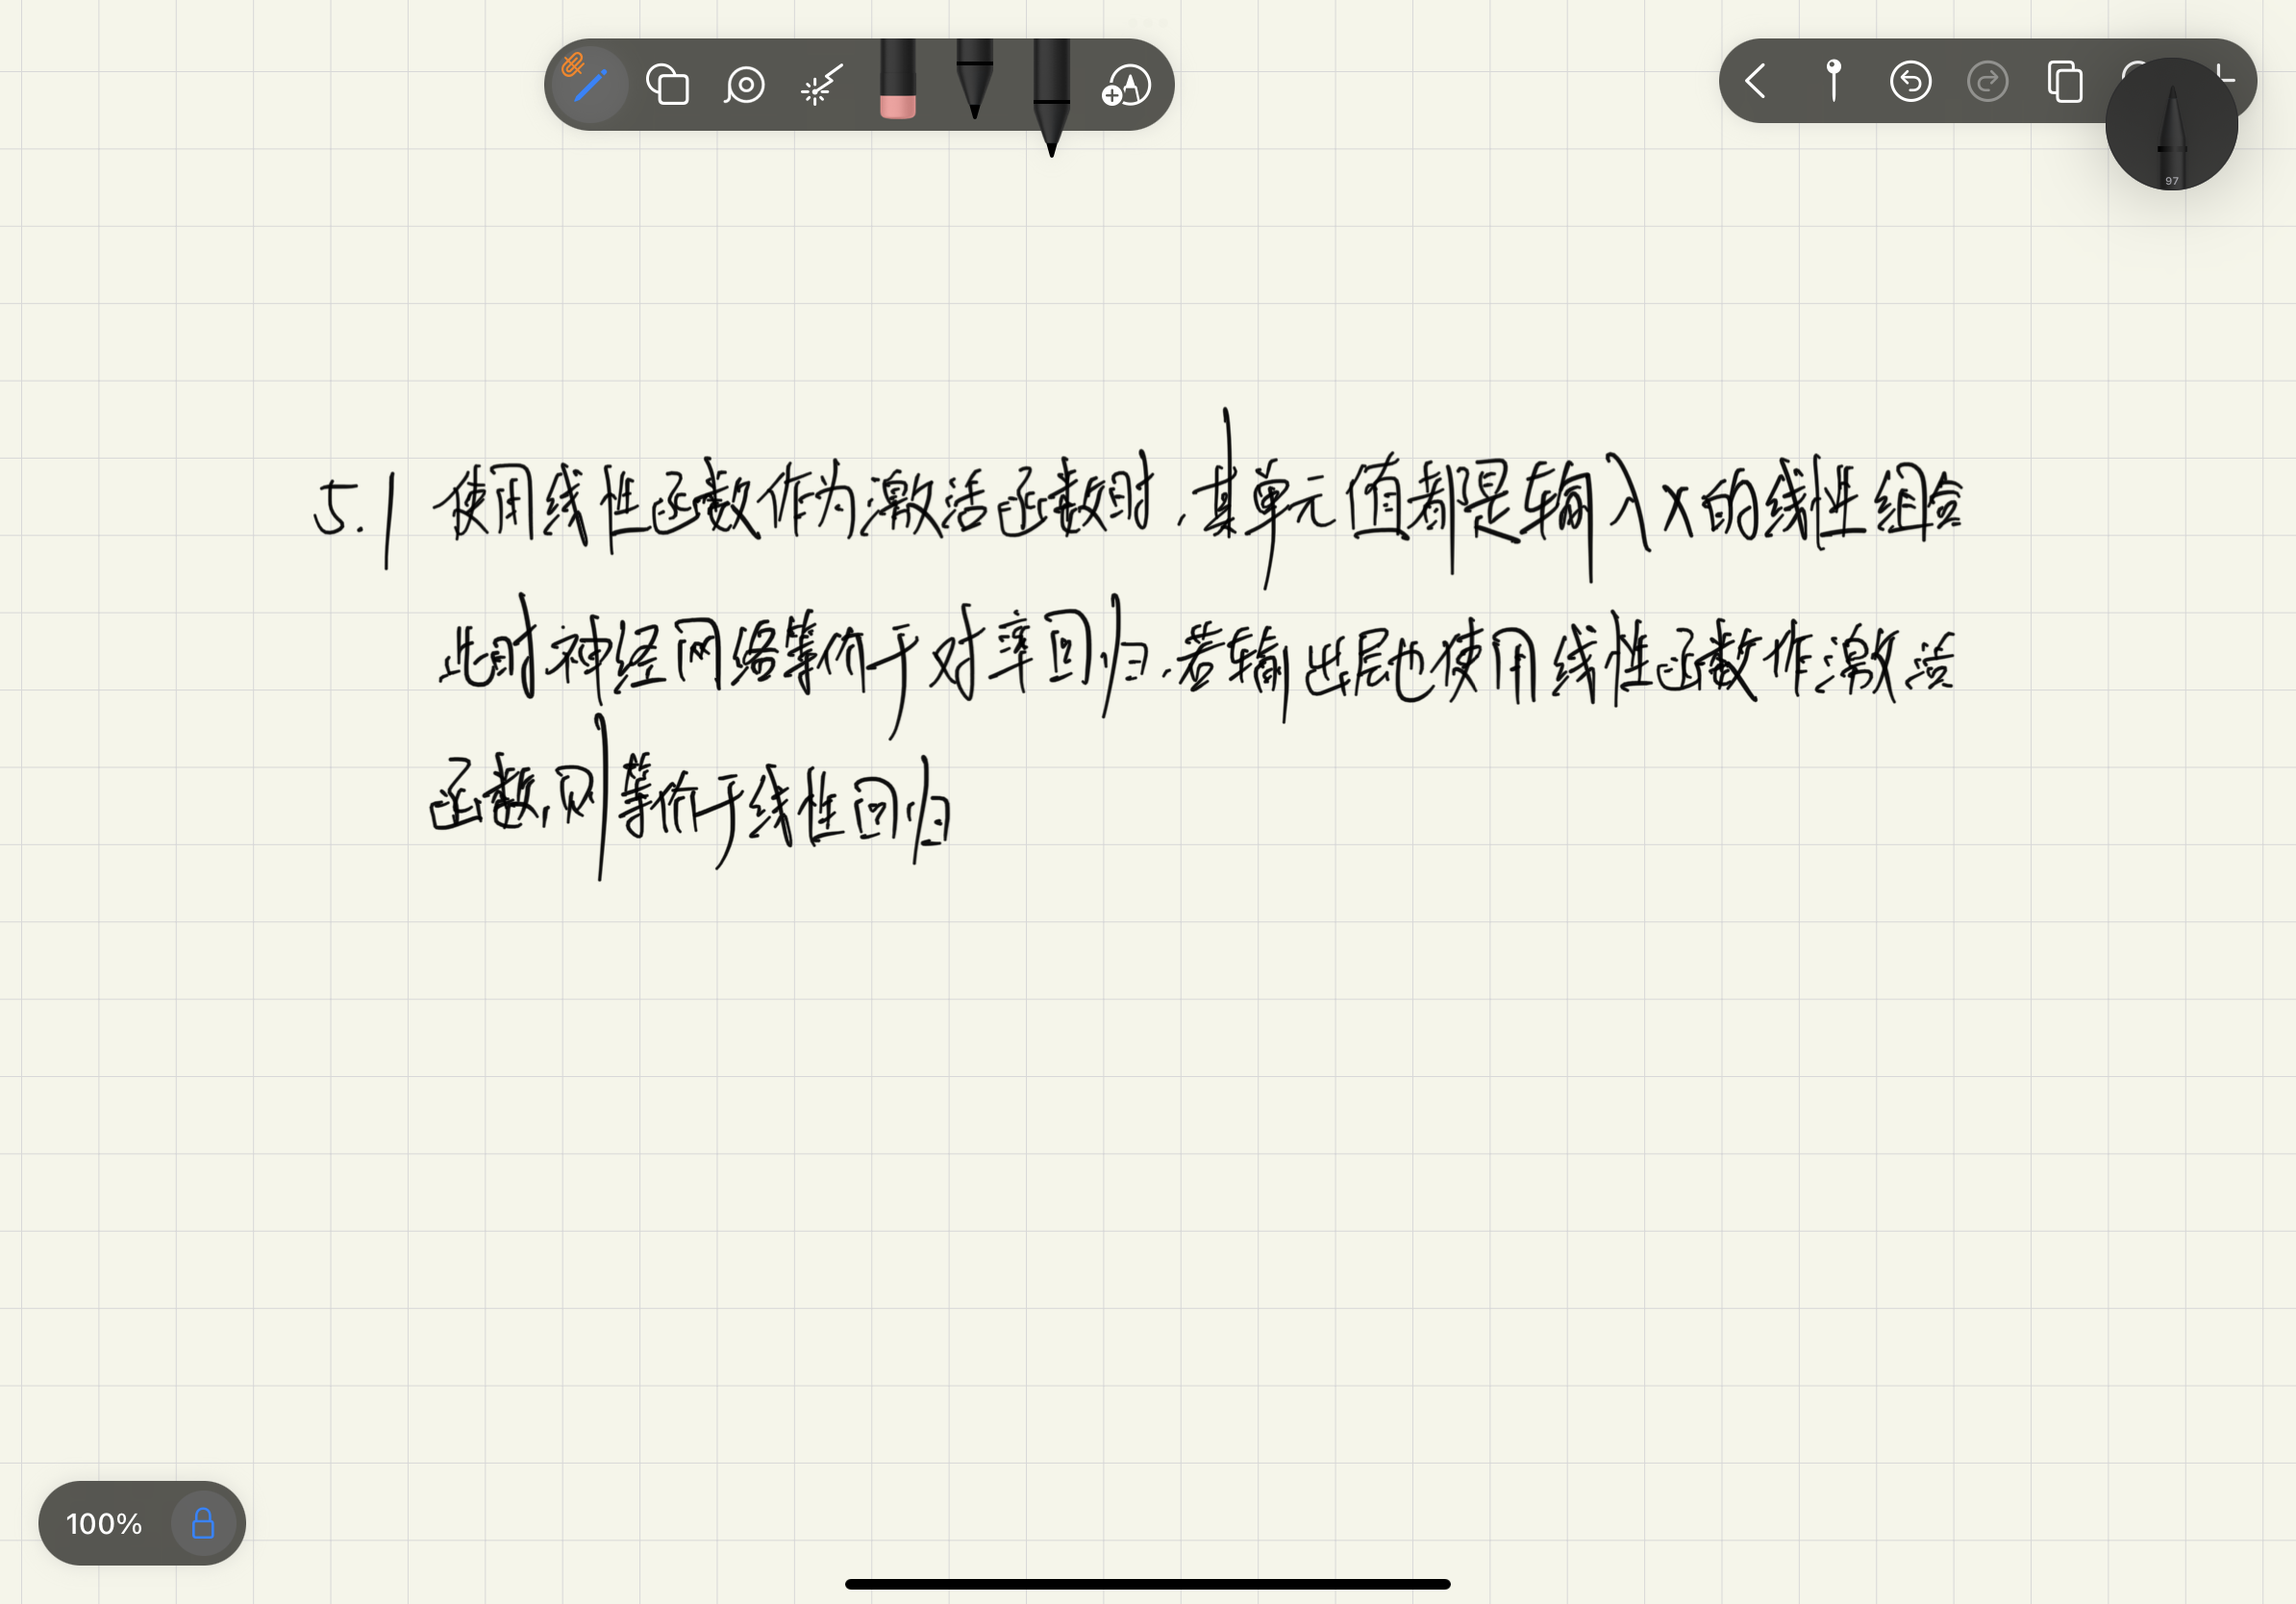 5.1 使用线性函数作为激活函数时,其单元值都是输入x的线性组合
此时神经网络等价于对率回归.若输出层也使用线性函数作激活
函数,则等价于线性回归
97
100%